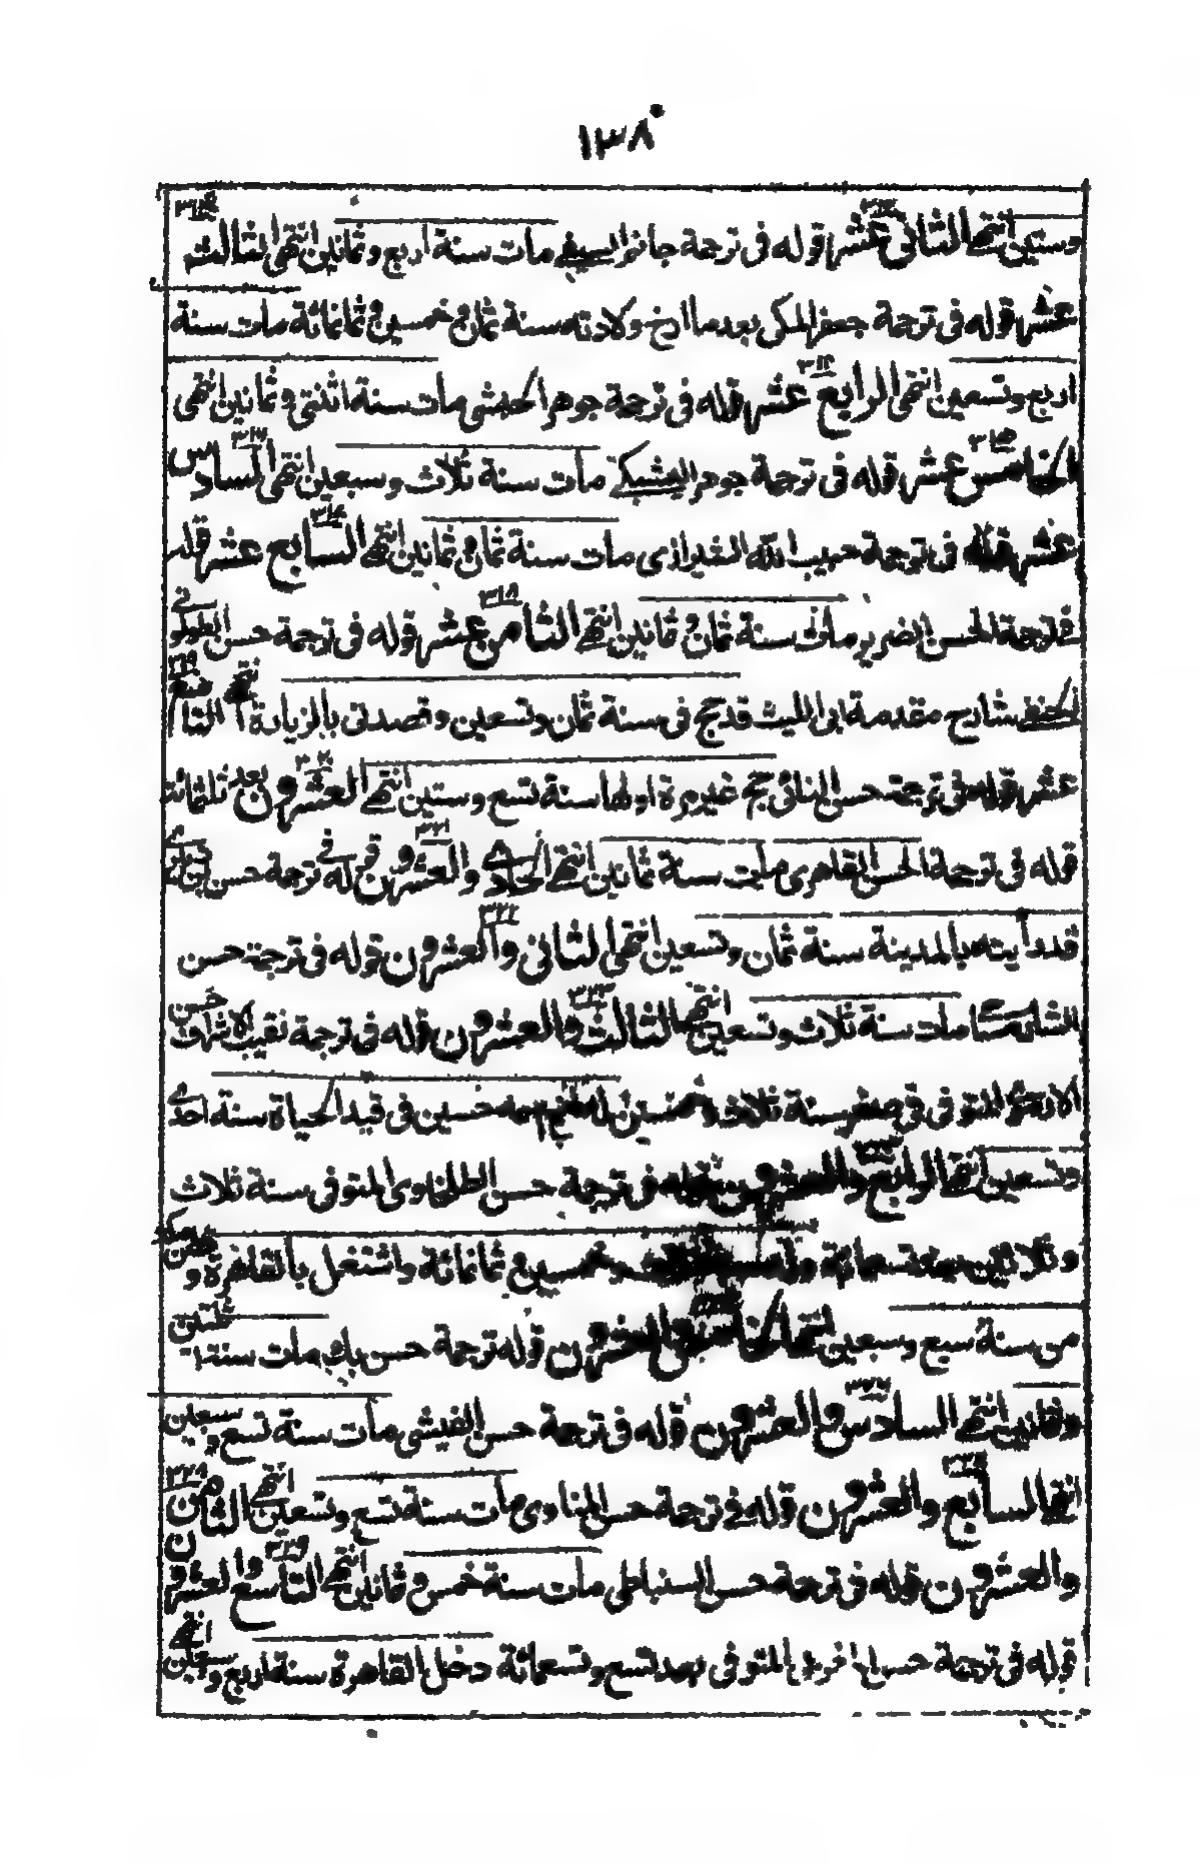 ١٣٨
وستين انتهى الثاني عشر قوله في ترجمة جانم السيفي مات سنة اربع وثمانين انتهى الثالث
عشر قوله في ترجمة جعفر المكي بعد ما ارخ ولادته سنة ثمان وخمسين وثمانمائة مات سنة
اربع وتسعين انتهى الرابع عشر قوله في ترجمة جوهر الحبشي مات سنة اثنتي وثمانين انتهى
الخامس عشر قوله في ترجمة جوهر اليشبكي مات سنة ثلاث وسبعين انتهى السادس
عشر قوله في ترجمة حبيب الله الشيرازي مات سنة ثمان وثمانين انتهى السابع عشر قوله
في ترجمة الحسن الضرير مات سنة ثمان وثمانين انتهى الثامن عشر قوله في ترجمة حسن
الحنفي شارح مقدمة ابي الليث قد حج في سنة ثمان وتسعين وقصدني بالزيارة انتهى التاسع
عشر قوله في ترجمة حسن النائي حج غير مرة اولها سنة تسع وستين انتهى العشرون بعد ثلثمائة
قوله في ترجمة الحسن القاهري مات سنة ثمانين انتهى الحادي والعشرون قوله في ترجمة حسن
قد رايته بالمدينة سنة ثمان وتسعين انتهى الثاني والعشرون قوله في ترجمة حسن
مات سنة ثلاث وتسعين انتهى الثالث والعشرون قوله في ترجمة نقيب الاشراف حسن
المتوفى في صفر سنة ثلاث وخمسين حسين في قيد الحياة سنة احدى
وتسعين انتهى الرابع والعشرون قوله في ترجمة حسن الطلخاوي المتوفى سنة ثلاث
وثلاثين بعد تسعمائة وخمسين وثمانمائة واشتغل بالقاهرة و
من سنة سبع وسبعين انتهى الخامس والعشرون قوله ترجمة حسن بك مات سنة
وثمانين انتهى السادس والعشرون قوله في ترجمة حسن الفيشي مات سنة تسع وسبعين
انتهى السابع والعشرون قوله في ترجمة حسن المناوي مات سنة تسع وتسعين انتهى الثامن
والعشرون قوله في ترجمة حسن السنباطي مات سنة خمس وثمانين انتهى التاسع والعشرون
قوله في ترجمة حسن المتوفى بعد تسع وتسعمائة دخل القاهرة سنة اربع وسبعين انتهى